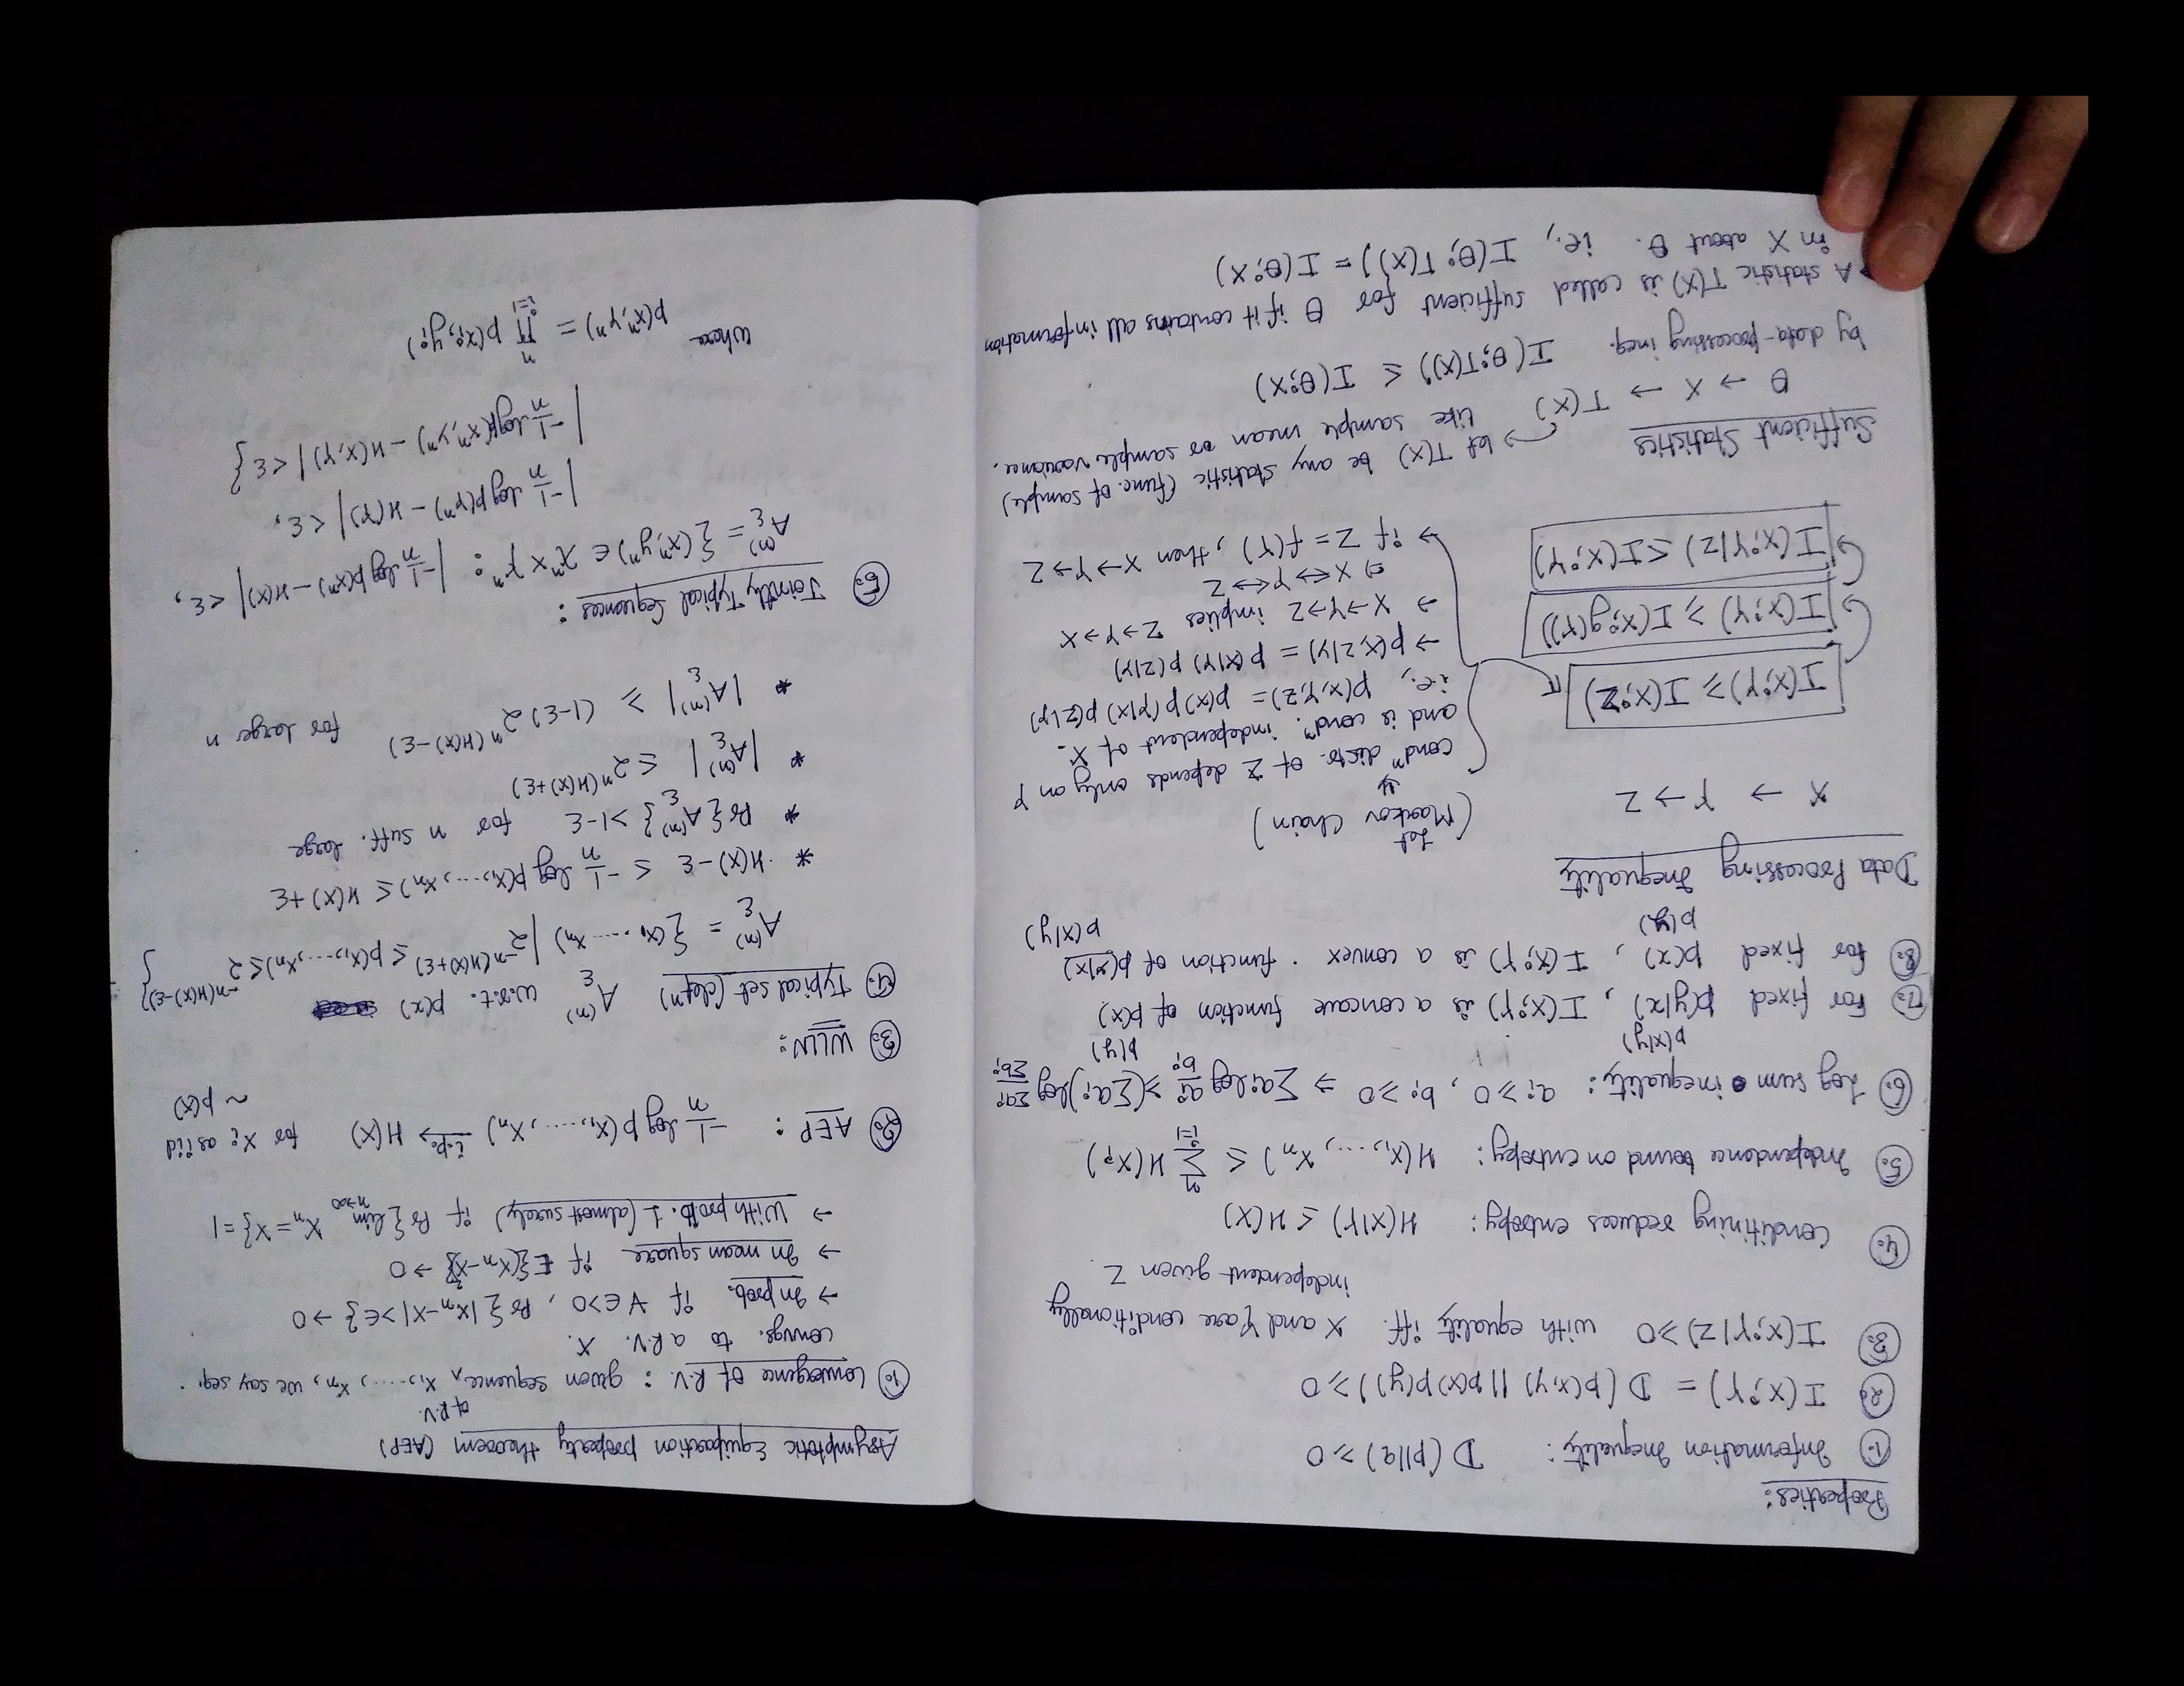 Properties:
① Information Inequality: D(p||q) ≥ 0
② I(X;Y) = D(p(x,y) || p(x)p(y)) ≥ 0
③ I(X;Y|Z) ≥ 0 with equality iff. X and Y are conditionally
independent given Z.
④ Conditining reduces entropy: H(X|Y) ≤ H(X)
⑤ Independence bound on entropy: H(X₁,...,Xₙ) ≤ Σᵢ₌₁ⁿ H(Xᵢ)
⑥ Log sum inequality: aᵢ ≥ 0, bᵢ ≥ 0 ⇒ Σaᵢ log aᵢ/bᵢ ≥ (Σaᵢ) log Σaᵢ/Σbᵢ
p(x|y) p(y)
⑦ For fixed p(y|x), I(X;Y) is a concave function of p(x).
⑧ for fixed p(x), I(X;Y) is a convex function of p(y|x)
p(y) p(x|y)
Data Processing Inequality
X → Y → Z
Let
(Markov Chain)
condⁿ distr. of Z depends only on Y
and is condⁿ. independent of X.
i.e., p(x,y,z) = p(x) p(y|x) p(z|y)
→ p(x,z|y) = p(x|y) p(z|y)
→ X→Y→Z implies Z→Y→X
⇒ X↔Y↔Z
→ if Z = f(Y), then X→Y→Z
I(X;Y) ≥ I(X;Z)
I(X;Y) ≥ I(X;g(Y))
I(X;Y|Z) ≤ I(X;Y)
Sufficient Statistics
→ let T(X) be any statistic (func. of sample)
like sample mean or sample variance.
θ → X → T(X)
by data-processing ineq. I(θ;T(X)) ≤ I(θ;X)
→ A statistic T(X) is called sufficient for θ if it contains all information
in X about θ. ie, I(θ;T(X)) = I(θ;X)
Asymptotic Equipartion property theorem (AEP)
of R.V.
① Convergence of R.V.: given sequence‸ X₁,.....,Xₙ, we say seq.
convgs. to a R.V. X.
→ In prob. if ∀ ε>0, Pr{|Xₙ-X|>ε} → 0
→ In mean square if E{(Xₙ-X)²} → 0
→ With prob. 1 (almost surely) if Pr{lim n→∞ Xₙ = X} = 1
② AEP: -1/n log p(X₁,.....,Xₙ) i.p.→ H(X) for Xᵢ as iid
~ p(x)
③ WLLN:
④ Typical set (defⁿ) A_ε^(n) w.r.t. p(x)
A_ε^(n) = {(x₁,.....xₙ) | 2^-n(H(X)+ε) ≤ p(x₁,....,xₙ) ≤ 2^-n(H(X)-ε)}
* H(X)-ε ≤ -1/n log p(x₁,....,xₙ) ≤ H(X)+ε
* Pr{A_ε^(n)} > 1-ε for n suff. large
* |A_ε^(n)| ≤ 2^n(H(X)+ε)
* |A_ε^(n)| ≥ (1-ε) 2^n(H(X)-ε) for large n
⑤ Jointly Typical Sequences:
A_ε^(n) = {(xⁿ,yⁿ) ∈ 𝒳ⁿ×𝒴ⁿ: |-1/n log p(xⁿ) - H(X)| < ε,
|-1/n log p(yⁿ) - H(Y)| < ε,
|-1/n log p(xⁿ,yⁿ) - H(X,Y)| < ε}
where p(xⁿ,yⁿ) = Πᵢ₌₁ⁿ p(xᵢ,yᵢ)